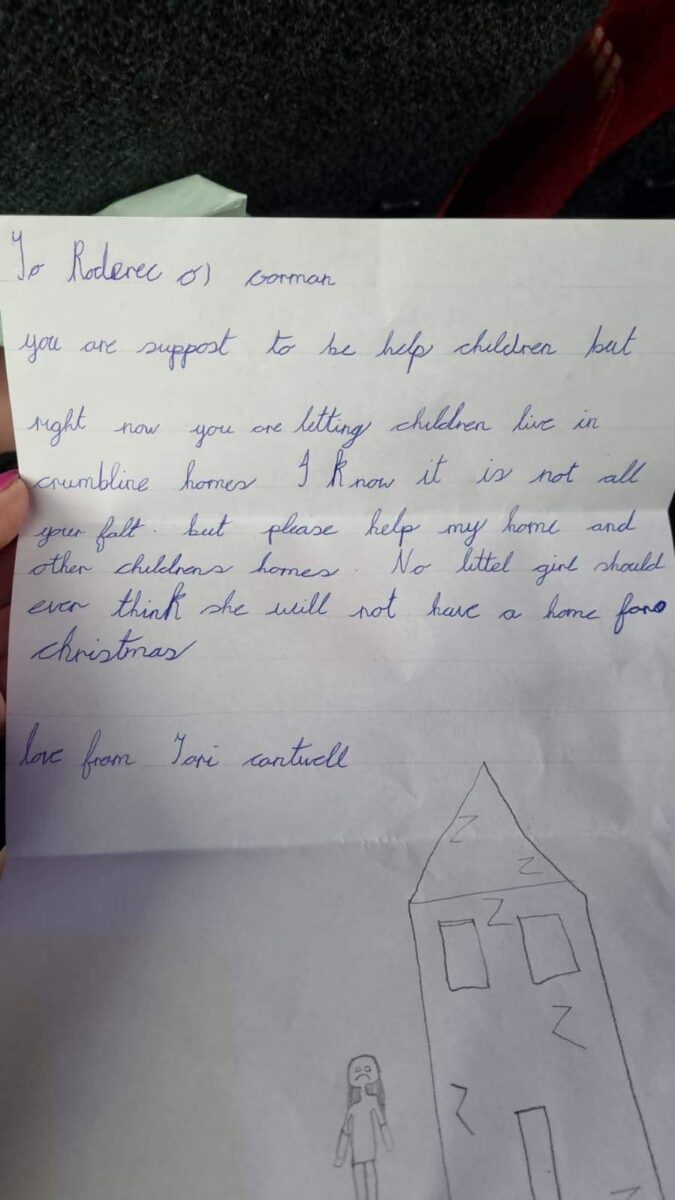 To Roderec O) Gorman
you are suppost to be help children but
right now you are letting children live in
crumbline homes I know it is not all
your falt. but please help my home and
other childrens homes. No littel girl should
ever think she will not have a home for
christmas
love from Tori cantwell